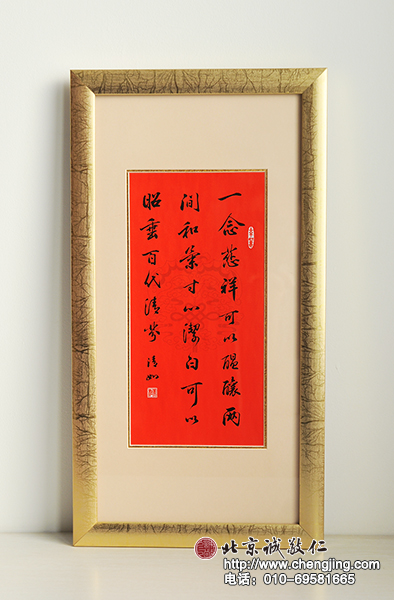 一念慈祥可以醖釀兩
間和氣寸心潔白可以
昭垂百代清芬 清如
北京诚敬仁
http://www.chengjing.com
电话：010-69581665